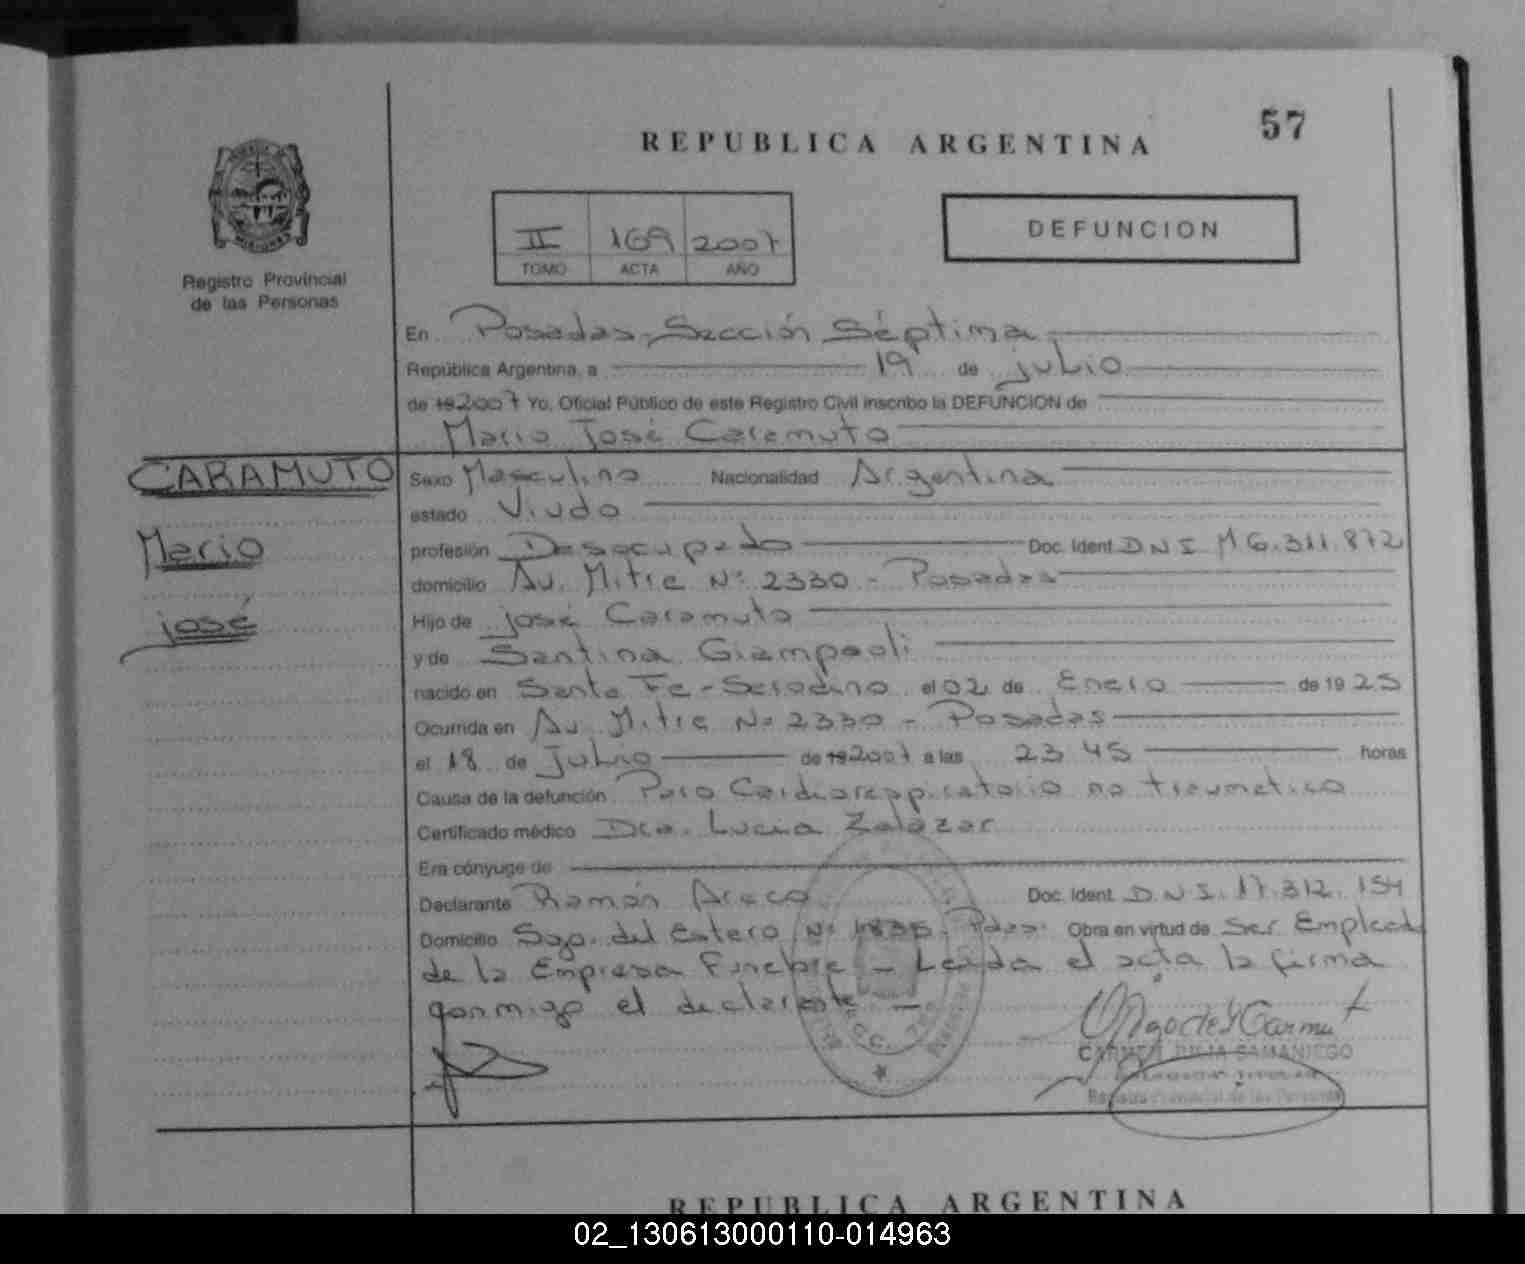 57
REPUBLICA ARGENTINA
II 169 2007
TOMO ACTA AÑO
DEFUNCION
Registro Provincial
de las Personas
En Posadas-Sección Séptima
República Argentina, a 19 de julio
de 19 2007 Yo, Oficial Público de este Registro Civil inscribo la DEFUNCION de
Mario José Caramuto
CARAMUTO
Mario
josé
Sexo Masculino Nacionalidad Argentina
estado Viudo
profesión Desocupado Doc. Ident. D.N.I. M 6.311.872
domicilio Av. Mitre Nº 2330 - Posadas
Hijo de José Caramuto
y de Santina Giampaoli
nacido en Santa Fe - Serodino el 02 de Enero de 19 25
Ocurrida en Av. Mitre Nº 2330 - Posadas
el 18 de Julio de 19 2007 a las 23 45 horas
Causa de la defunción Paro Cardiorespiratorio no traumatico
Certificado médico Dra. Lucia Zalazar
Era cónyuge de
Declarante Ramón Areco Doc. Ident. D.N.I. 17.312.154
Domicilio Sgo. del Estero Nº 1835 - Pdas. Obra en virtud de Ser Emplead
de la Empresa Funebre - Leida el acta la firma
conmigo el declarante -
CARMEN JULIA SAMANIEGO
Registro Provincial de las Personas
REPUBLICA ARGENTINA
02_130613000110-014963